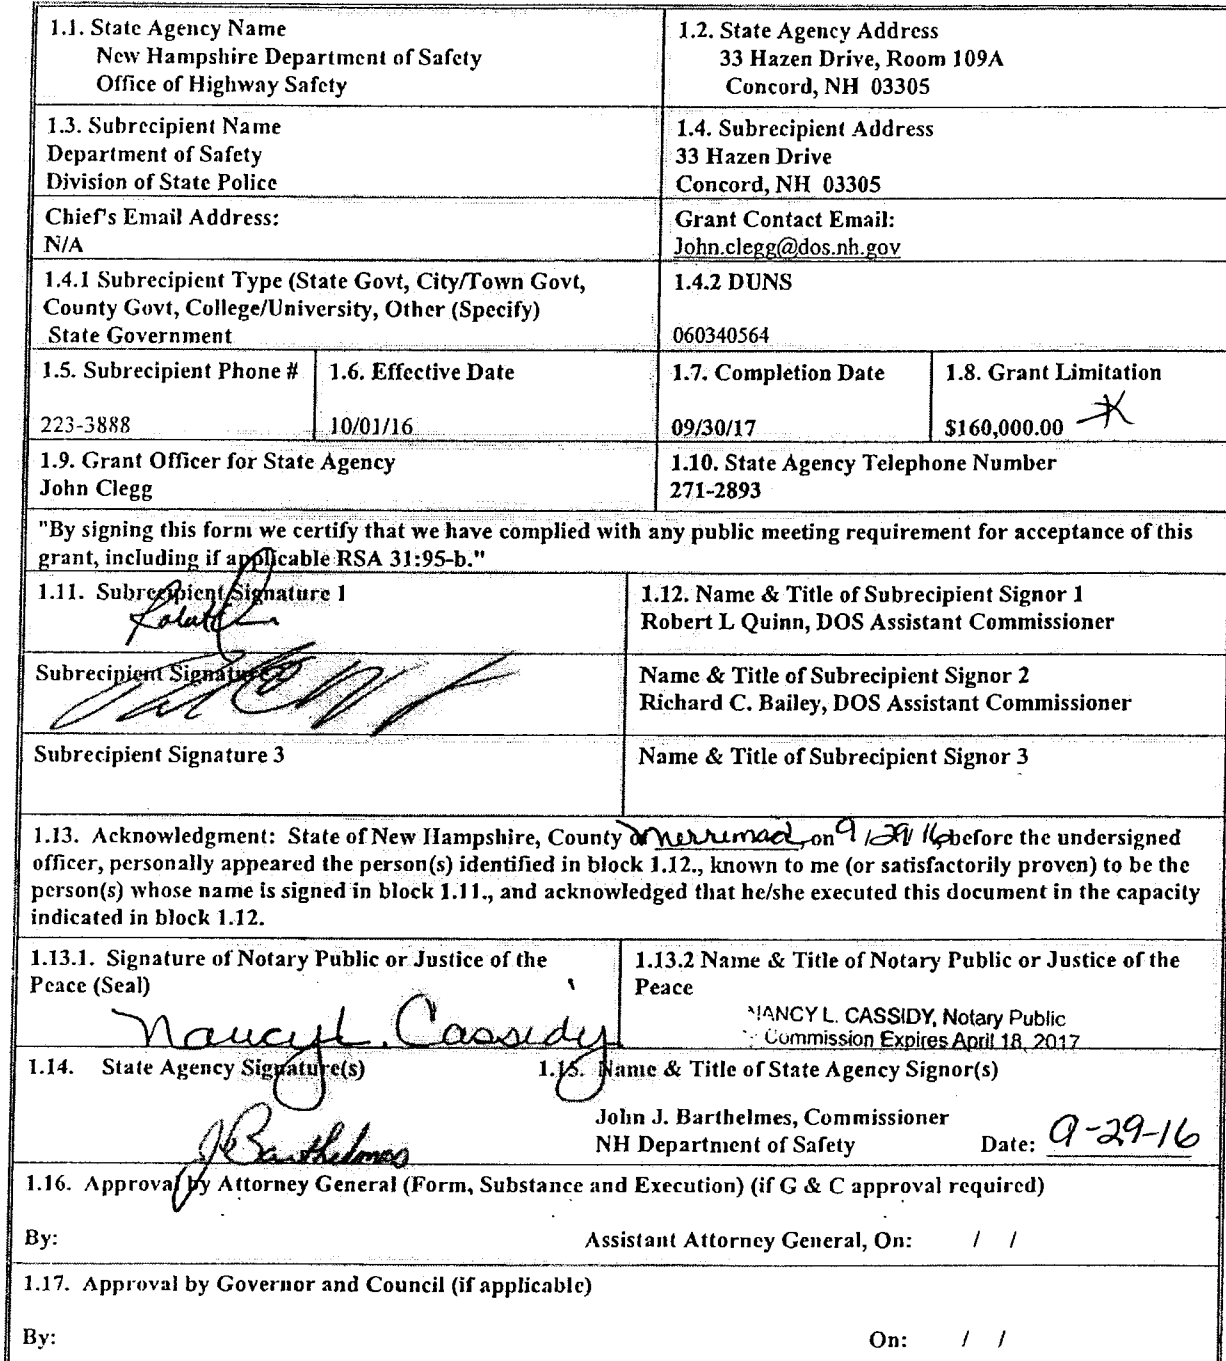 1.1. State Agency Name
New Hampshire Department of Safety
Office of Highway Safety
1.2. State Agency Address
33 Hazen Drive, Room 109A
Concord, NH 03305
1.3. Subrecipient Name
Department of Safety
Division of State Police
1.4. Subrecipient Address
33 Hazen Drive
Concord, NH 03305
Chief's Email Address:
N/A
Grant Contact Email:
John.clegg@dos.nh.gov
1.4.1 Subrecipient Type (State Govt, City/Town Govt,
County Govt, College/University, Other (Specify)
State Government
1.4.2 DUNS
060340564
1.5. Subrecipient Phone #
223-3888
1.6. Effective Date
10/01/16
1.7. Completion Date
09/30/17
1.8. Grant Limitation
$160,000.00
1.9. Grant Officer for State Agency
John Clegg
1.10. State Agency Telephone Number
271-2893
"By signing this form we certify that we have complied with any public meeting requirement for acceptance of this
grant, including if applicable RSA 31:95-b."
1.11. Subrecipient Signature 1
1.12. Name & Title of Subrecipient Signor 1
Robert L Quinn, DOS Assistant Commissioner
Subrecipient Signature
Name & Title of Subrecipient Signor 2
Richard C. Bailey, DOS Assistant Commissioner
Subrecipient Signature 3
Name & Title of Subrecipient Signor 3
1.13. Acknowledgment: State of New Hampshire, County of Merrimack, on 9/29/16 before the undersigned
officer, personally appeared the person(s) identified in block 1.12., known to me (or satisfactorily proven) to be the
person(s) whose name is signed in block 1.11., and acknowledged that he/she executed this document in the capacity
indicated in block 1.12.
1.13.1. Signature of Notary Public or Justice of the
Peace (Seal)
Nancy L. Cassidy
1.13.2 Name & Title of Notary Public or Justice of the
Peace
NANCY L. CASSIDY, Notary Public
Commission Expires April 18, 2017
1.14. State Agency Signature(s)
J Barthelmes
1.15. Name & Title of State Agency Signor(s)
John J. Barthelmes, Commissioner
NH Department of Safety
Date: 9-29-16
1.16. Approval by Attorney General (Form, Substance and Execution) (if G & C approval required)
By:
Assistant Attorney General, On: / /
1.17. Approval by Governor and Council (if applicable)
By:
On: / /